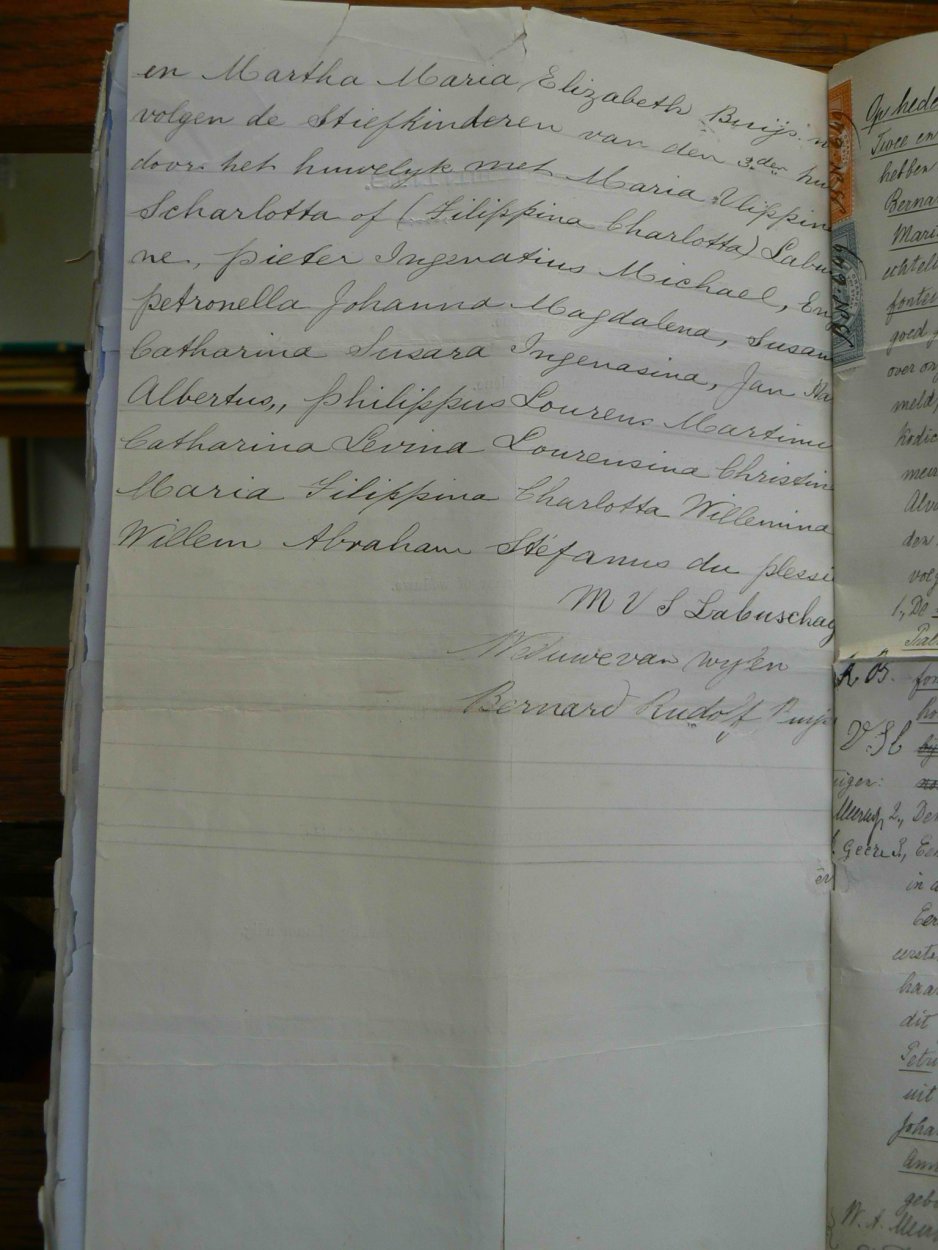 en Martha Maria Elizabeth Buijs
volgen de Stiefkinderen van den 3den hu
door het huwelyk met Maria Vlippin
Scharlotta of (Filippina Charlotta) Labu
ne, pieter Ingenatius Michael, En
petronella Johanna Magdalena, Susan
Catharina Susara Ingenasina, Jan
Albertus,, philippus Lourens Martinu
Catharina Levina Lourensina Christin
Maria Filippina Charlotta Willemina
Willem Abraham Stefanus du plessi
M V S Labuschag
Weduwe van wylen
Bernard Rudolf Buijs
Op hede
Twee en
hebben
Berna
Mari
echtel
fontei
goed g
over on
meld
Kodic
meer
Alva
den
volg
1, De
fon
2, Den
in a
Eer
eerste
haar
dit
Petru
uit
Joha
Ann
gebo